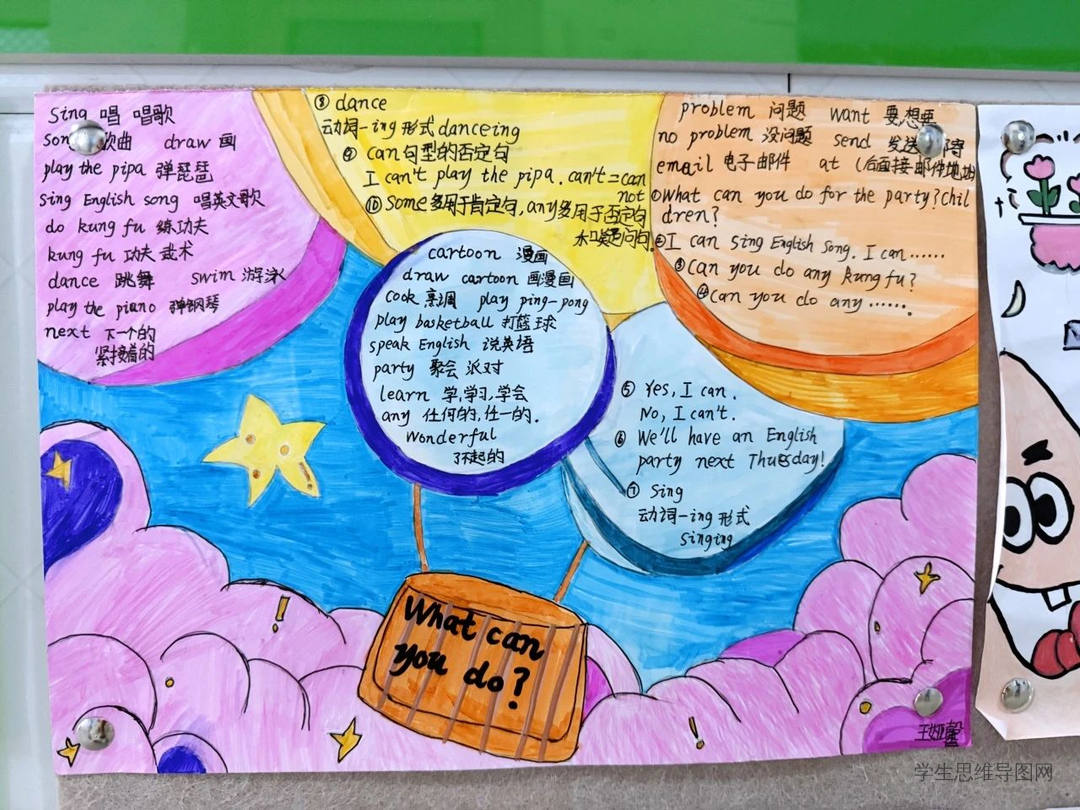 Sing 唱 唱歌
song 歌曲 draw 画
play the pipa 弹琵琶
sing English song 唱英文歌
do kung fu 练功夫
kung fu 功夫 武术
dance 跳舞 swim 游泳
play the piano 弹钢琴
next 下一个的
紧接着的
⑧ dance
动词-ing 形式 danceing
⑨ can句型的否定句
I can't play the pipa. can't = can
not
⑩ Some多用于肯定句, any多用于否定句
和疑问句.
problem 问题 want 要想要
no problem 没问题 send 发送
email 电子邮件 at (后面接邮件地址
①What can you do for the party? Chil
dren?
②I can sing English song. I can……
③Can you do any kung fu?
④Can you do any ……
cartoon 漫画
draw cartoon 画漫画
cook 烹调 play ping-pong
play basketball 打蓝球
speak English 说英语
party 聚会 派对
learn 学,学习,学会
any 任何的,任一的.
Wonderful
了不起的
⑤ Yes, I can.
No, I can't.
⑥ We'll have an English
party next Thursday!
⑦ Sing
动词-ing 形式
Singing
What can
you do?
学生思维导图网